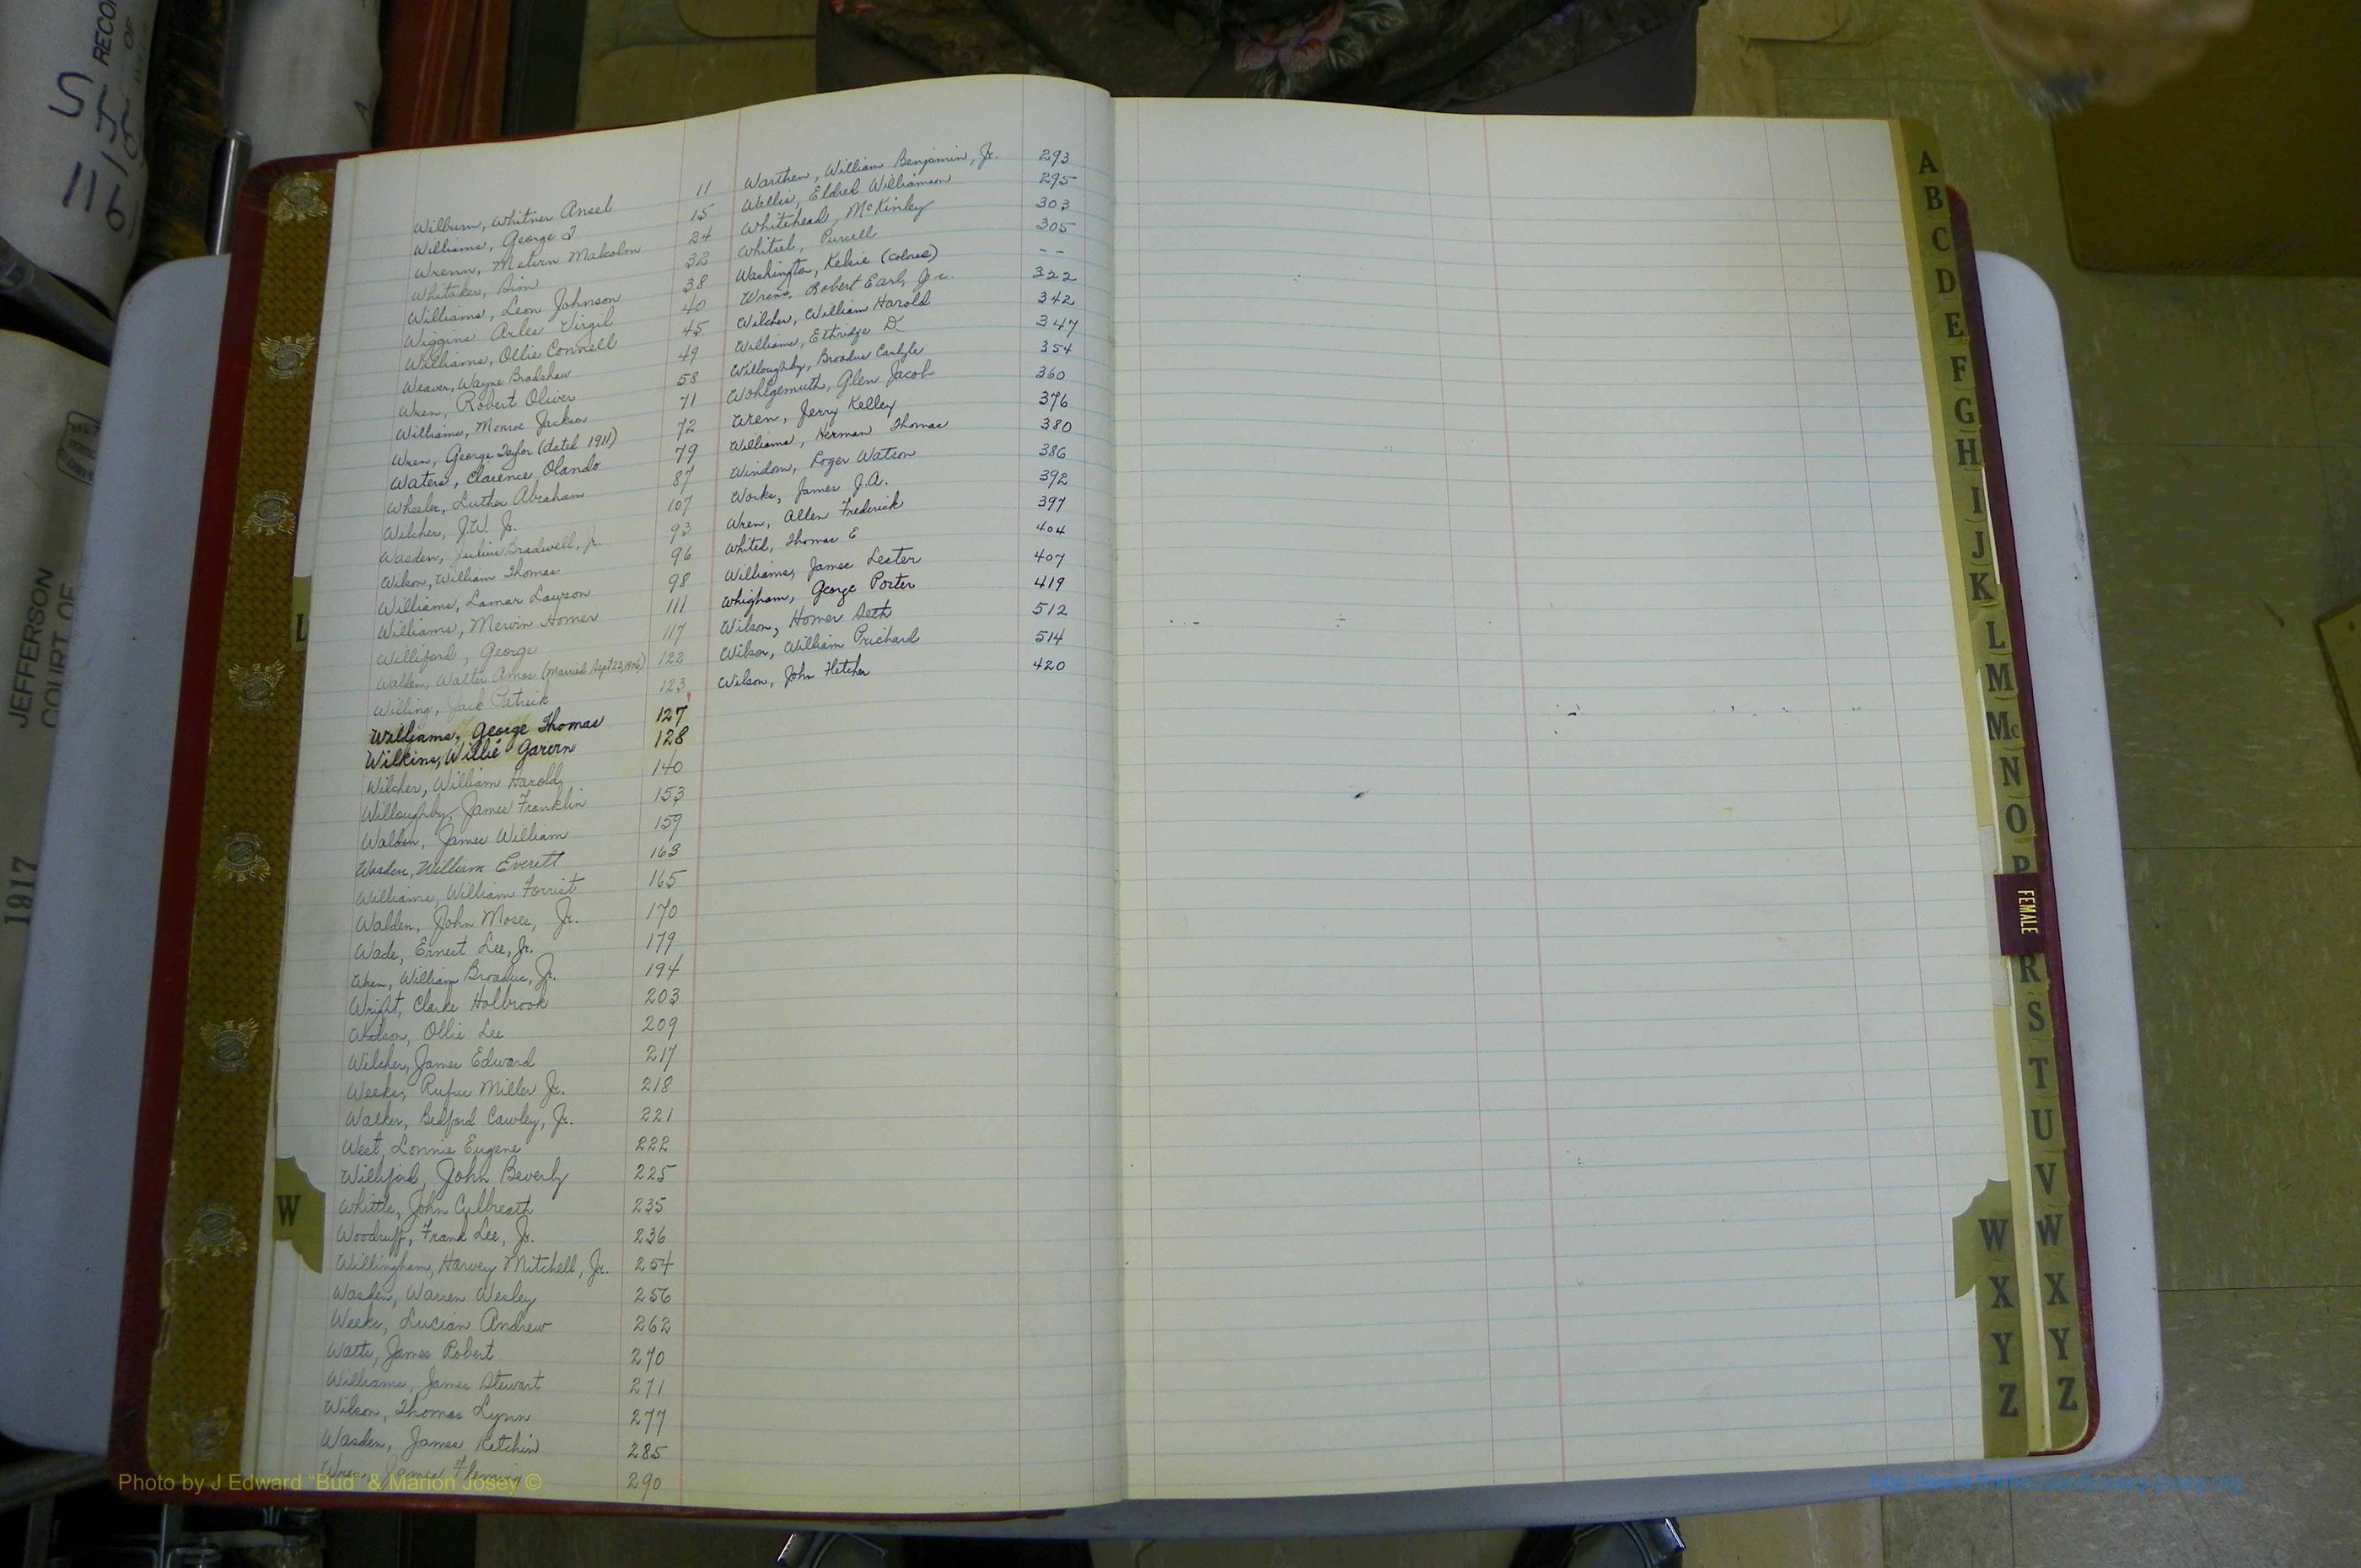 Wilburn, Whitner Ansel 11
Williams, George J 15
Wrenn, Melvin Malcolm 24
Whitaker, Sion 32
Williams, Leon Johnson 38
Wiggins Arles Virgil 40
Williams, Ollie Connell 45
Weaver, Wayne Bradshaw 49
Wren, Robert Oliver 58
Williams, Monroe Jackson 71
Wren, George Taylor (dated 1911) 72
Waters, Clarence Olando 79
Wheeler, Luther Abraham 87
Wilcher, J.W. Jr. 107
Wasden, Julius Bradwell, Jr. 93
Wilson, William Thomas 96
Williams, Lamar Lawson 98
Williams, Mervin Homer 111
Williford, George 117
Walden, Walter Amos (Married Sept 23, 1906) 122
Willing, Jack Patrick 123
Williams, George Thomas 127
Wilkins, Willie Garvin 128
Wilcher, William Harold, 140
Willoughby, James Franklin 153
Walden, James William 159
Wasden, William Everett 163
Williams, William Forrist 165
Walden, John Moses, Jr. 170
Wade, Ernest Lee, Jr. 179
Wren, William Broadus, Jr. 194
Wright, Clarke Holbrook 203
Watson, Ollie Lee 209
Wilcher, James Edward 217
Weeks, Rufus Miller Jr. 218
Walker, Bedford Cawley, Jr. 221
West, Lonnie Eugene 222
Williford, John Beverly 225
Whittle, John Culbreath 235
Woodruff, Frank Lee, Jr. 236
Willingham, Harvey Mitchell, Jr. 254
Wasden, Warren Wesley 256
Weeks, Lucian Andrew 262
Watts, James Robert 270
Williams, James Stewart 271
Wilson, Thomas Lynn 277
Wasden, James Kitchin 285
Wren James Fleming 290
Warthen, William Benjamin, Jr. 293
Wallis, Eldred Williamson 295
Whitehead, McKinley 303
Whitsel, Purcell 305
Washington, Kelsie (colored) - -
Wrens, Robert Earl, Jr. 322
Wilcher, William Harold 342
Williams, Ethridge D. 347
Willoughby, Broadus Carlyle 354
Wohlgemuth, Glen Jacob 360
Wren, Jerry Kelley 376
Williams, Herman Thomas 380
Windom, Roger Watson 386
Works, James J.A. 392
Wren, Allen Frederick 397
Whited, Thomas E 404
Williams, James Lester 407
Whigham, George Porter 419
Wilson, Homer Seth 512
Wilson, William Prichard 514
Wilson, John Fletcher 420
A
B
C
D
E
F
G
H
I
J
K
L
M
Mc
N
O
P
FEMALE
R
S
T
U
V
W
X
Y
Z
W
X
Y
Z
L
W
JEFFERSON
COURT OF
1917
Photo by J Edward "Bud" & Marion Josey ©